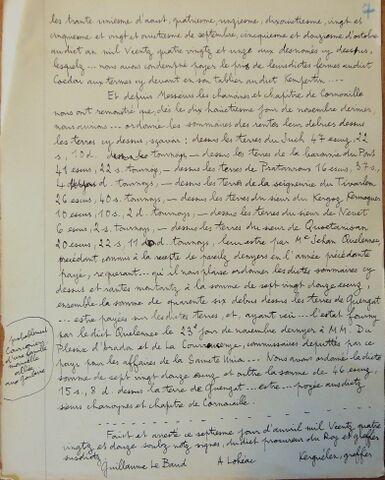 7
les trante uniesme d'aoust, quatriesme, unziesme, dixouictiesme, vingt et
cinquiesme et vingt et ouictiesme de septembre, cinquiesme et douziesme d'octobre
audict an mil Vcentz quatre vingtz et unze aux desnomés cy dessus,
lesquelz ... nous avons condempné payer le pris de leursdictes fermes audict
Coedou aux termes cy devant en son tablier audict Kempertin....
Et depuis Messieurs les chanoines et chapitre de Cornouaille
nous ont remonstré que, dès le dix huictiesme jour de novembre dernier,
nous aurions ... ordonné les sommaires des rentes leur debues dessus
les terres cy dessus, sçavoir : dessus les terres du Juch 47 escuz, 22
s, 10 d. tournoys, — dessus les terres de la baronnie du Pont
41 escuz, 22 s. tournoys, — dessus les terres de Pratanroux 16 escuz, 37 s,
4 d. tournoys, — dessus les terres de la seigneurie du Tivarlen
26 escuz, 40 s. tournoys, — dessus les terres du sieur du Kergoz,
10 escuz, 10 s, 2 d. tournoys, — dessus les terres du sieur de Nevet
6 escuz, 2 s. tournoys, — dessus les terres du sieur de
20 escuz, 22 s, 11 d. tournoys, leur estre par Me Jehan Quelenec
précédent commis à la recete de pareilz denyers en l'année précédante
payé, requerant... qu'il nous plaise ordonner lesdictes sommaires cy
dessus et rantes montantz à la somme de sept vingt douze escuz
ensemble la somme de quarente six debus dessus les terres de Guengat
... estre payées sur lesdictes terres, et, ayant veu ... l'estat fourny
par le dict Quelenec le 23e jour de novembre dernyer à MM. Du
Plessix d'Arada et de La, commissaires deputtés par ce
pays pour les affaires de la Saincte Union... Nous avons ordonné la dicte
somme de sept vingt douze escuz et oultre la somme de 46 escuz,
15 s., 8 d. dessus la terre de Guengat ... estre ... poyée ausdictz
sieurs chanoynes et chapitre de Cornouaille.
probablement
d'une famille
nouvelle
alliée
aux
Faict et aresté ce septiesme jour d'apvril mil Vcentz quatre
vingtz et douze soulz notz signes, du dict procureur du Roy et greffier
susdictz
Guillaume Le Baud A Lohéac Kerguélen, greffier